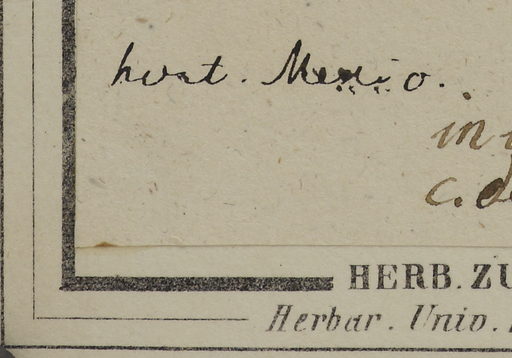 hort. Mexico.
in
c. d
HERB. ZU
Herbar. Univ.